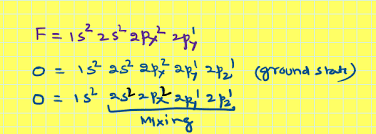 F = 1s² 2s² 2px² 2py¹
O = 1s² 2s² 2px² 2py¹ 2pz¹ (ground state)
O = 1s² 2s² 2px² 2py¹ 2pz¹
Mixing